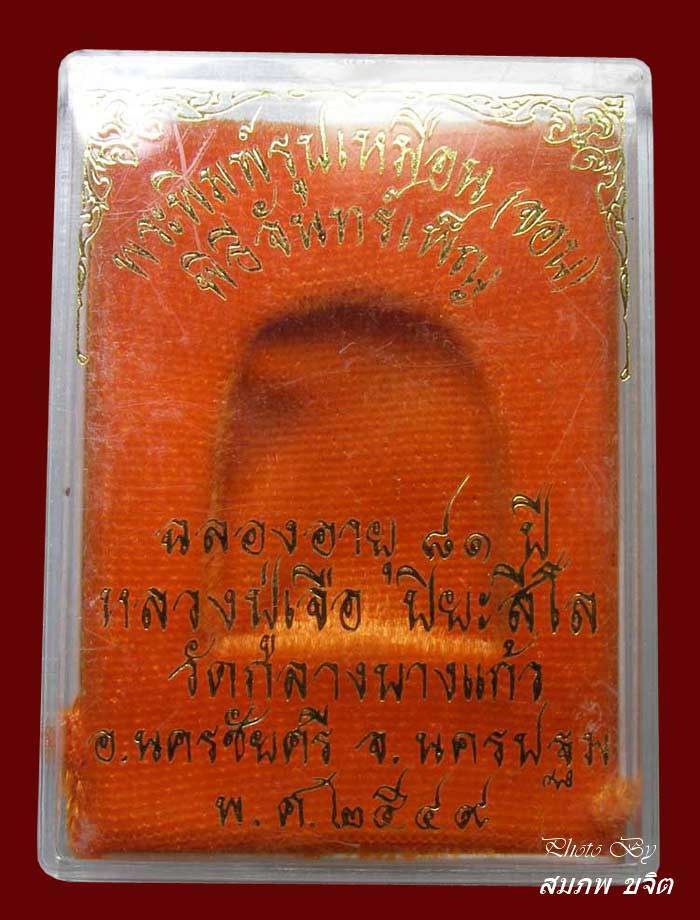 พระพิมพ์รูปเหมือน (ขอบ)
พิธี จันทร์เพ็ญ
ฉลองอายุ ๘๑ ปี
หลวงปู่เจือ ปิยะสีโล
วัดกลางบางแก้ว
อ.นครชัยศรี จ.นครปฐม
พ.ศ.๒๕๔๙
Photo By
สมภพ ขจิต